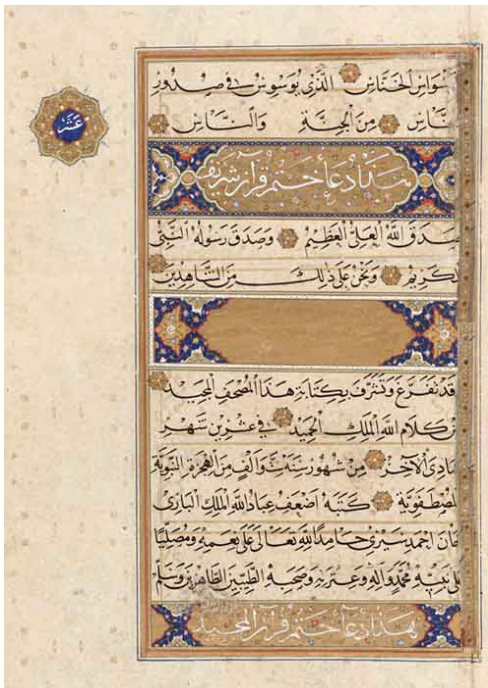 عشر
الوسواس الخناس الذي يوسوس في صدور
الناس من الجنة والناس
هذا دعا ختم قرآن شريف
صدق الله العلي العظيم وصدق رسوله النبي
الكريم ونحن على ذلك من الشاهدين
قد تفرغ وتشرف بكتابة هذا المصحف المجيد
من كلام الله الملك الحميد في عشرين شهر
جمادى الآخر من شهور سنة والف من الهجرة النبوية
المصطفوية كتبه اضعف عباد الله الملك الباري
احمد حامدا لله تعالى على نعمه ومصليا
على نبيه محمد وآله وعترته وصحبه الطيبين الطاهرين وسلم
هذا دعا ختم قرآن المجيد